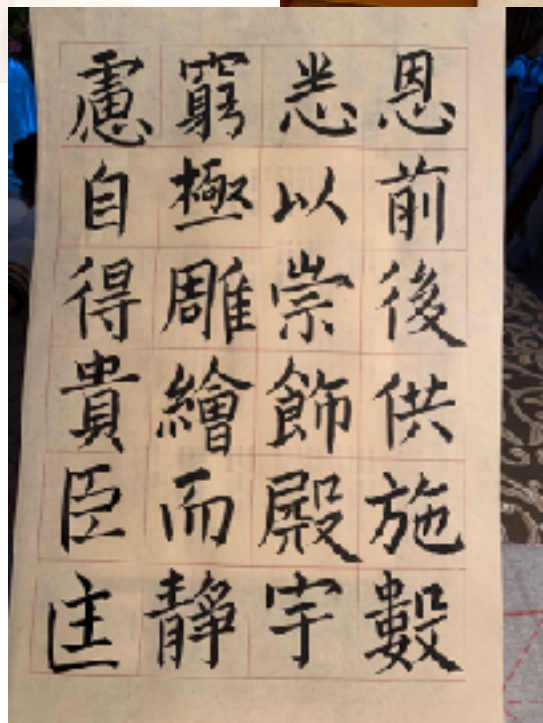 恩前後供施數
悉以崇飾殿宇
窮極雕繪而靜
慮自得貴臣匡